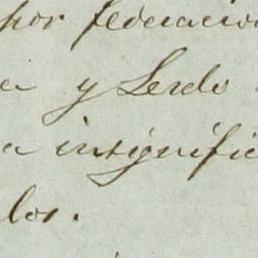 por federacio
a y Lerdo
a insignific
los.